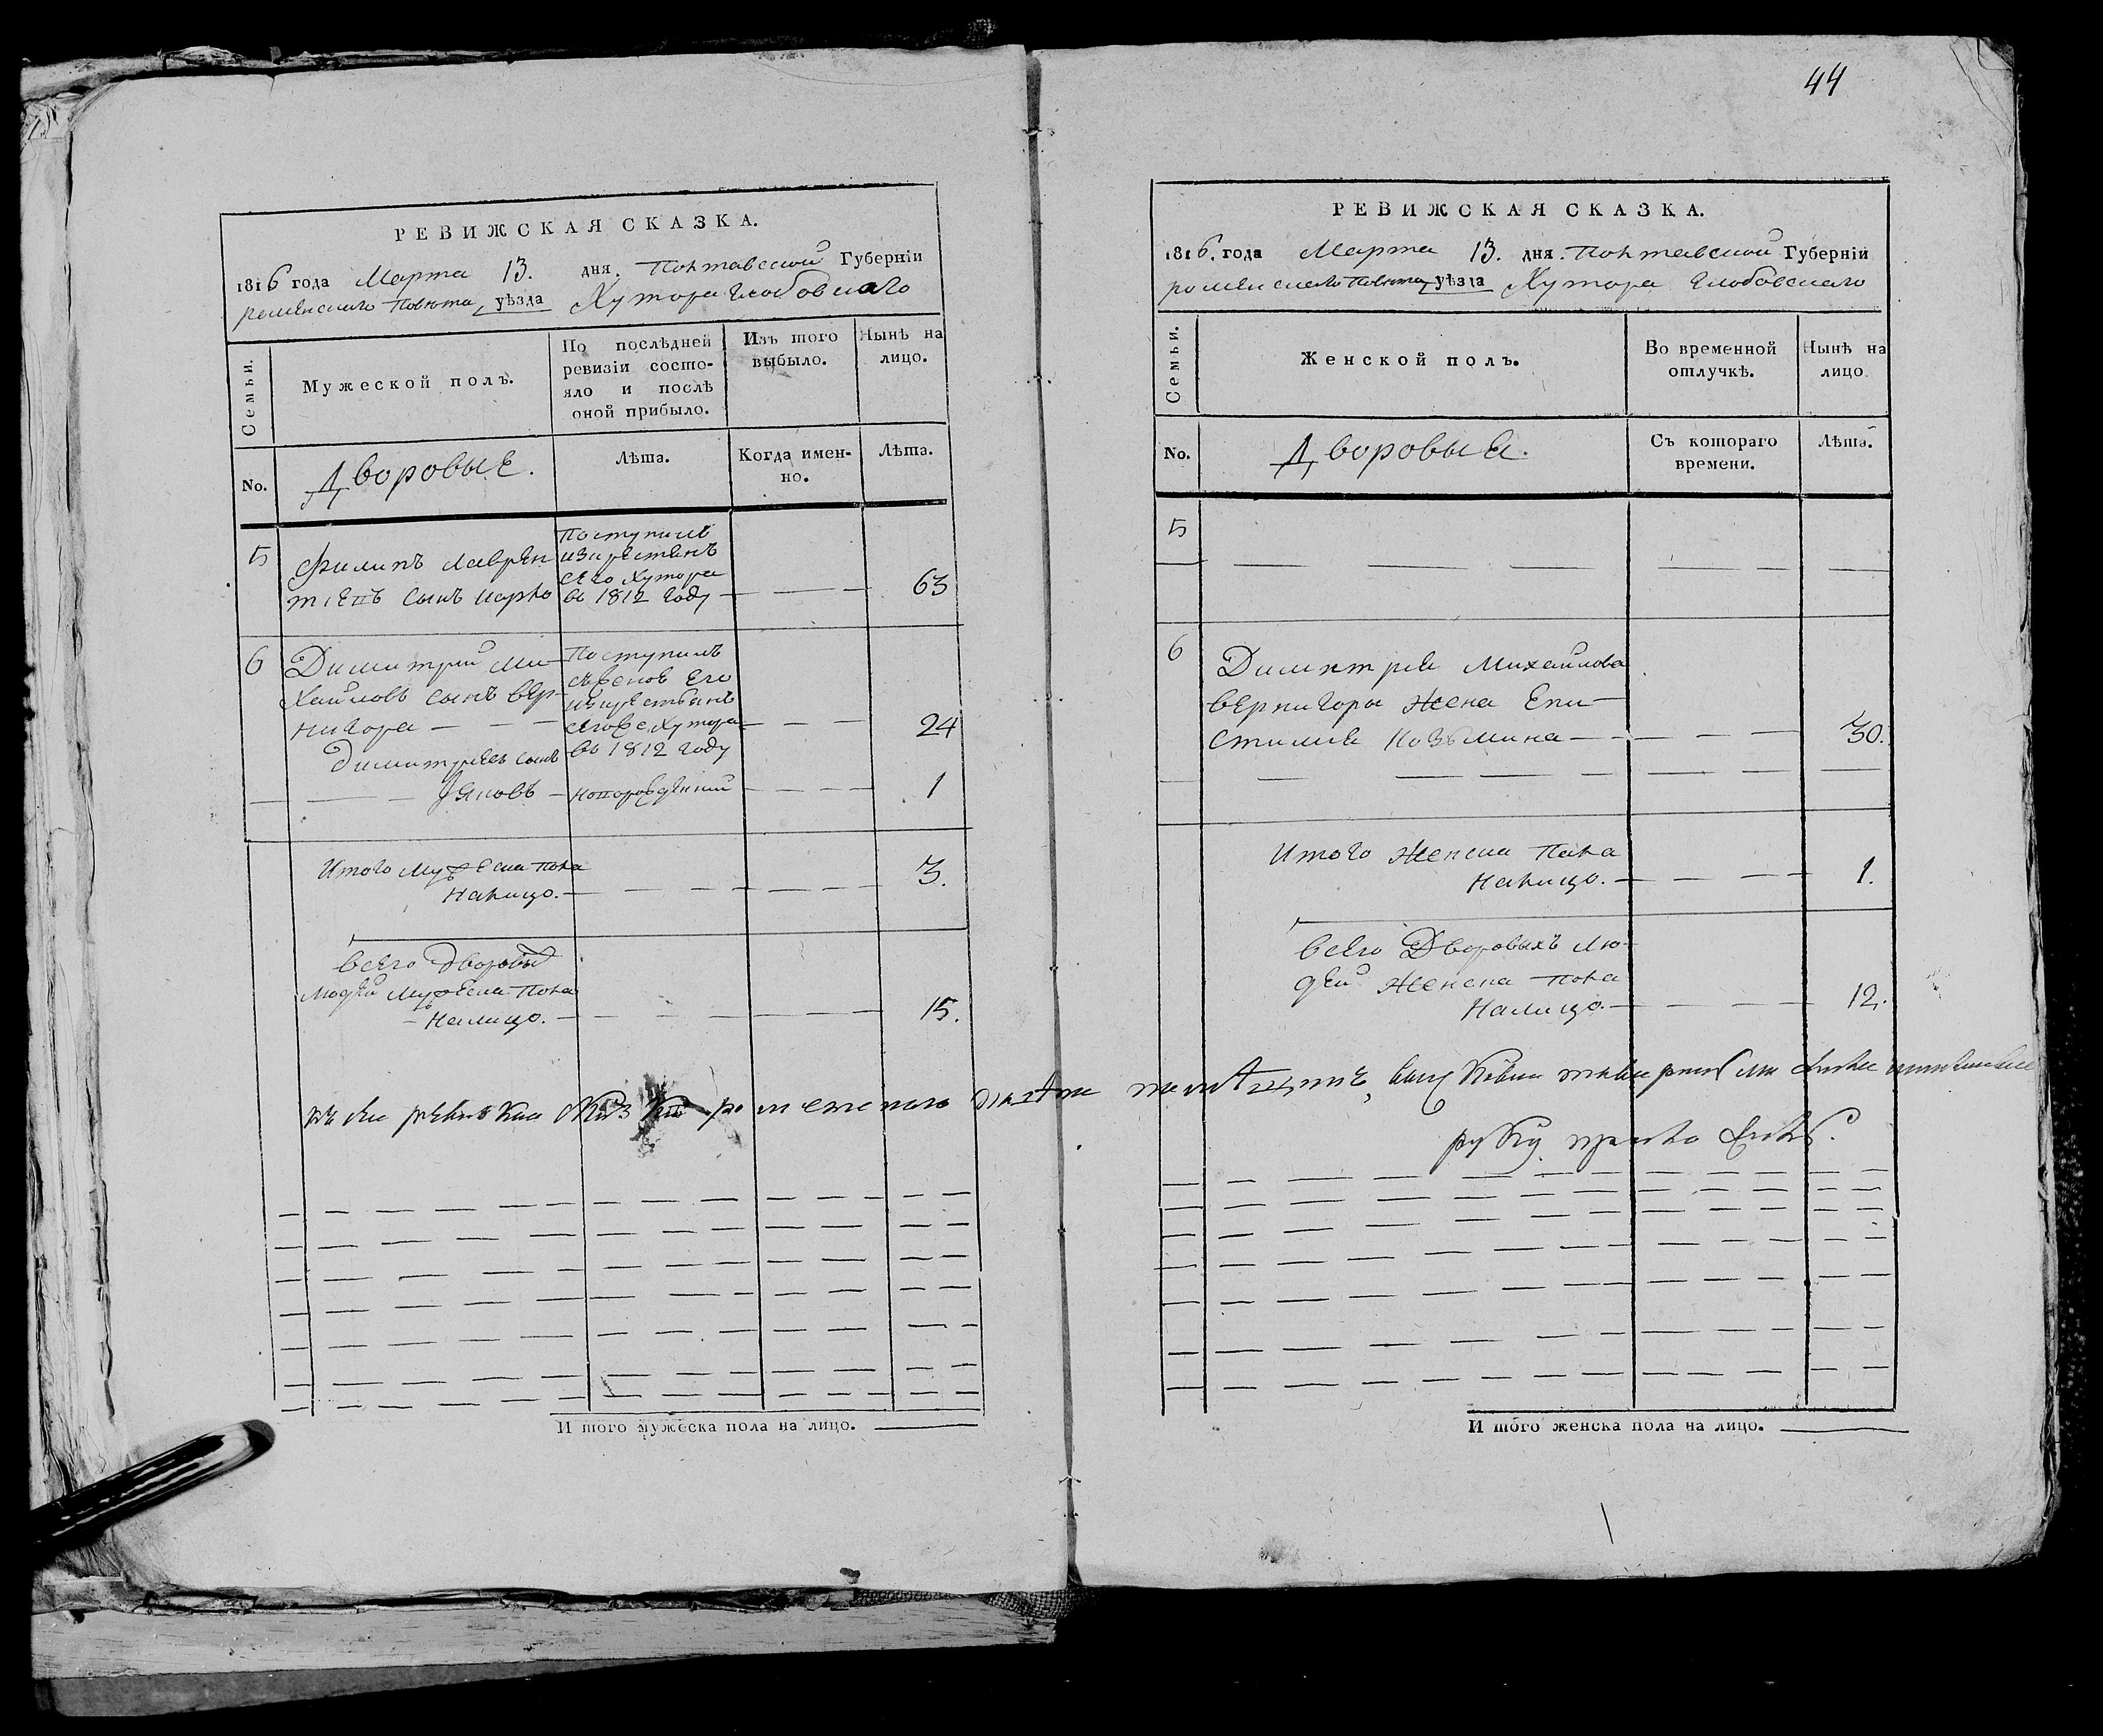 РЕВИЖСКАЯ СКАЗКА.
1816 года Марта 13. дня. Полтавской Губерніи
роменского повета уѣзда Хутора Глобовского
Семьи.
Мужеской полъ.
По послѣдней
ревизіи состо-
яло и послѣ
оной прибыло.
Изъ того
выбыло.
Нынѣ на
лицо.
No.
Дворовые.
Лѣта.
Когда имен-
но.
Лѣта.
5
Филипъ Лаврен
тіевъ сынъ
Поступилъ
изкрестянъ
сего Хутора
въ 1812 году
63
6
Димитрій Ми-
хайловъ сынъ вер-
нигора
Поступилъ
изкрестьянъ
Хутора
въ 1812 году
24
димитріевъ сынъ
Яковъ
новорожденний
1
Итого Мужеска пола
Налицо.
3.
всего дворовых
людей Мужеска пола
Налицо.
15.
Итого мужеска пола на лицо.
44
РЕВИЖСКАЯ СКАЗКА.
1816. года Марта 13. дня. Полтавской Губерніи
роменского повета уѣзда Хутора Глобовского
Семьи.
Женской полъ.
Во временной
отлучкѣ.
Нынѣ на
лицо
No.
Дворовые.
Съ котораго
времени.
Лѣта.
5
6
Димитрія Михайлова
вернигоры Жена Епи-
стимия Козьмина
30.
Итого Женска Пола
Налицо.
1.
всего Дворовыхъ Лю-
дей Женска пола
Налицо.
12.
къ сей
руку
Итого женска пола на лицо.